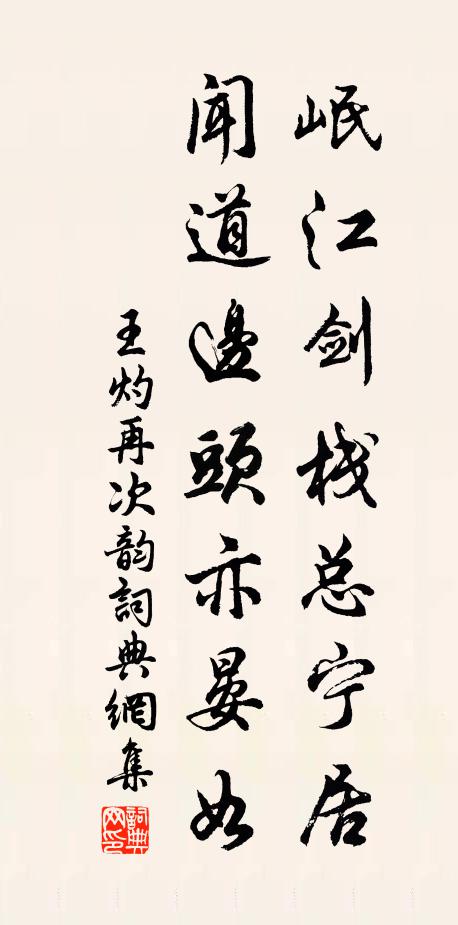 岷江剑栈总宁居
闻道邊頭亦晏如
王灼再次韵詞典網集
詞典网印